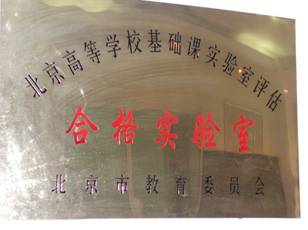 北京高等学校基础课实验室评估
合格实验室
北京市教育委员会